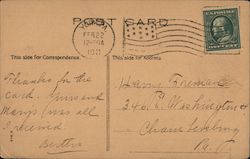 POST CARD
FEB 22
12-30A
1911
This side for Correspondence.
This side for Address.
Thanks for the
card. Yours and
Marys was all
I received.
Bertha
Harry Foreman
346 E Washington st
Chambersburg
Pa